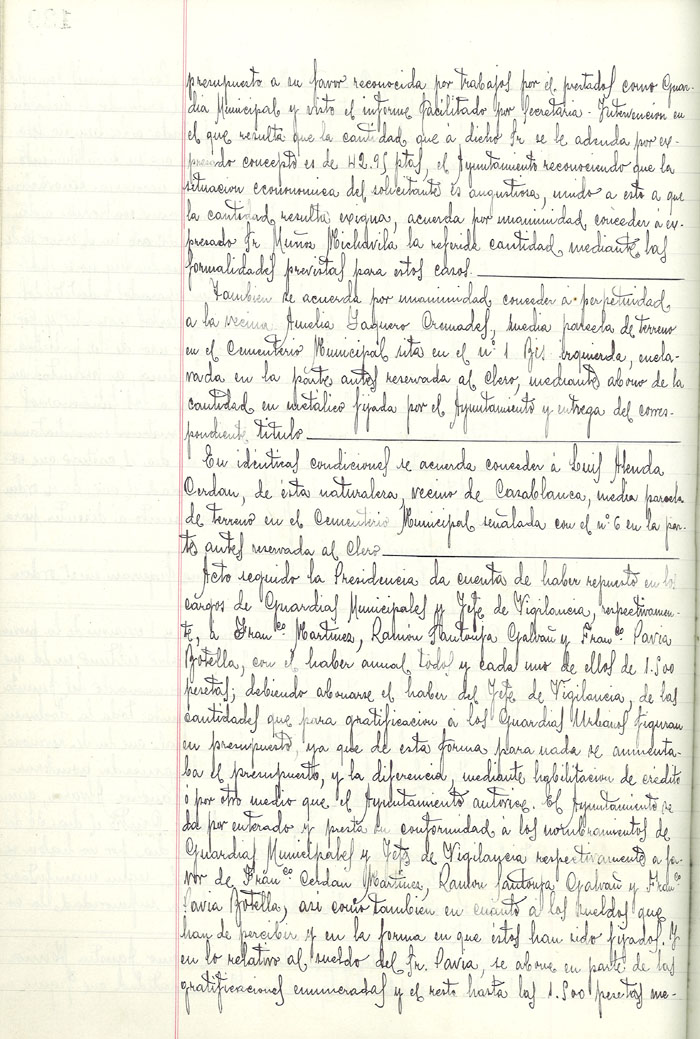 presupuesto a su favor reconocida por trabajos por él prestados como Guar-
dia Municipal y visto el informe facilitado por Secretaria-Intervencion en
el que resulta que la cantidad que a dicho Sr. se le adeuda por ex-
presado concepto es de 42.95 ptas, el Ayuntamiento reconociendo que la
situacion econonomica del solicitante es angustiosa, unido a esto a que
la cantidad resulta exigua, acuerda por unanimidad conceder á ex-
presado Sr. Muñoz Michavila la referida cantidad mediante las
formalidades previstas para estos casos.
Tambien se acuerda por unanimidad conceder á perpetuidad
a la vecina Amelia Jaquero Cremades, media parcela de terreno
en el Cementerio Municipal sita en el nº 1 Bis izquierda, encla-
vada en la parte antes reservada al Clero, mediante abono de la
cantidad en metálico fijada por el Ayuntamiento y entrega del corres-
pondiente titulo
En identicas condiciones se acuerda conceder á Luis Alenda
Cerdan, de esta naturaleza, vecino de Casablanca, media parcela
de terreno en el Cementerio Municipal señalada con el nº 6 en la par-
te antes reservada al Clero
Acto seguido la Presidencia da cuenta de haber repuesto en los
cargos de Guardias Municipales y Jefe de Vigilancia, respectivamen-
te, á Franco Martinez, Ramón Santonja Galvañ y Franco Pavia
Botella, con el haber anual todos y cada uno de ellos de 1.500
pesetas; debiendo abonarse el haber del Jefe de Vigilancia, de las
cantidades que para gratificacion á los Guardias Urbanos figuran
en presupuesto, ya que de esta forma para nada se aumenta-
ba el presupuesto, y la diferencia, mediante habilitacion de credito
ó por otro medio que el Ayuntamiento autorice. El Ayuntamiento se
da por enterado y presta su conformidad á los nombramientos de
Guardias Municipales y Jefe de Vigilancia respectivamente a fa-
vor de Franco Cerdan Martinez, Ramon Santonja Galvañ y Franco
Pavia Botella, asi como tambien en cuanto a los sueldos que
han de percibir y en la forma en que estos han sido fijados. Y
en lo relativo al sueldo del Sr. Pavia, se abone en parte de las
gratificaciones enumeradas y el resto hasta las 1.500 pesetas me-